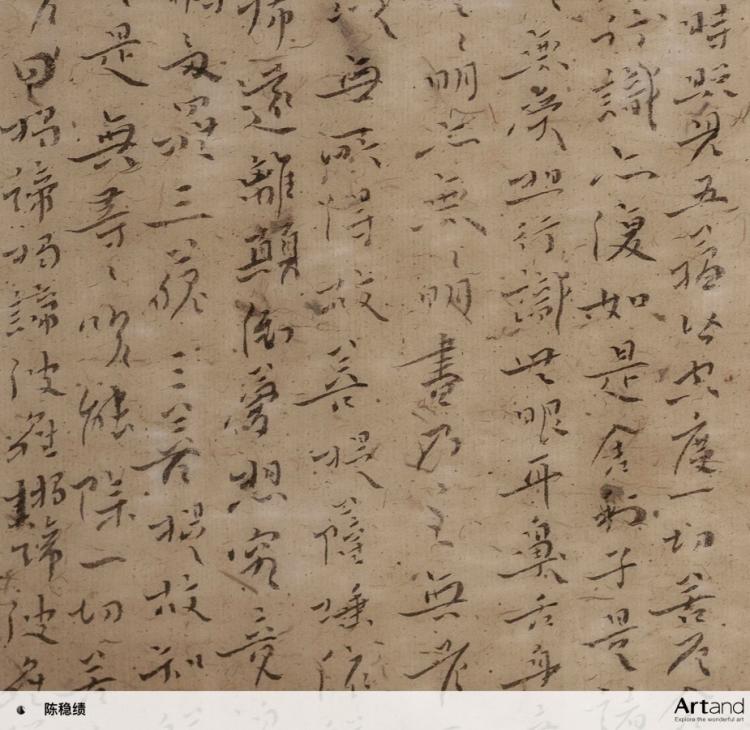 時照見五蘊皆空度一切苦厄
行識亦復如是舍利子是諸
無受想行識無眼耳鼻舌身
〻明亦無〻明盡乃至無老
無所得故菩提薩埵依
怖遠離顛倒夢想究竟
耨多羅三藐三菩提故知
是無等〻呪能除一切苦
曰揭諦揭諦波羅揭諦波羅
陈稳绩
Artand
Explore the wonderful art